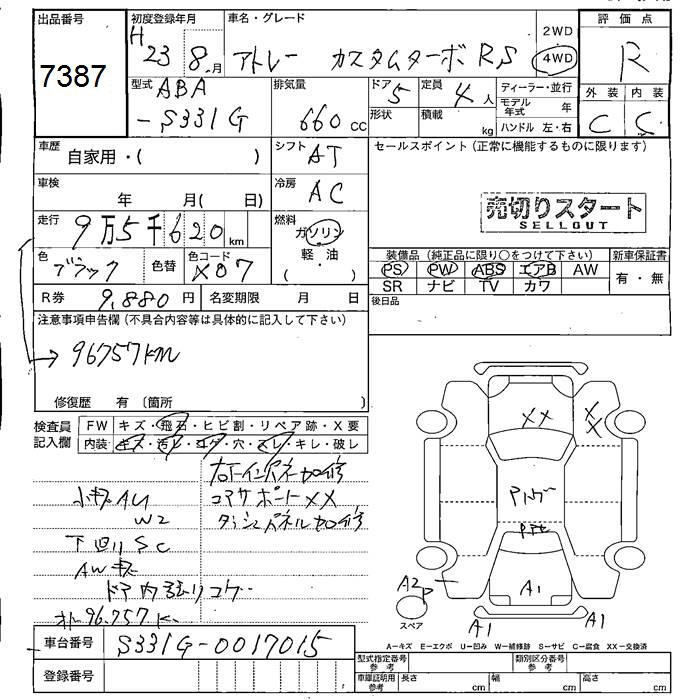 出品番号 初度登録年月 車名・グレード 評価点
7387 H23 8月 アトレー カスタムターボRS 2WD 4WD R
型式 ABA-S331G 排気量 660cc ドア 5 定員 4人 ディーラー・並行 外装 内装
形状 積載 kg モデル年式 年 C C
ハンドル 左・右
車歴 自家用・( ) シフト AT セールスポイント(正常に機能するものに限ります)
車検 年 月( 日) 冷房 AC
売切りスタート
SELLOUT
走行 9万5千620km 燃料 ガソリン・軽油 ( )
色 ブラック 色替 色コード X07
装備品(純正品に限り○をつけて下さい) 新車保証書
PS PW ABS エアB AW 有・無
SR ナビ TV カワ
R券 9,880円 名変期限 月 日 後日品
注意事項申告欄(不具合内容等は具体的に記入して下さい)
→96757km
修復歴 有〔箇所 〕
検査員記入欄 FW キズ・飛石・ヒビ割・リペア跡・X要
内装 キズ・汚レ・コゲ・穴・スレ・キレ・破レ
右インパネ加修
小キズAU コアサポートXX
W2 ダッシュパネル加修
下回りSC
AWキズ
ドア内張りコゲ
96.757K
XX
XX
A1
A2
P
スペア
A1 A1
A-キズ E-エクボ U-凹み W-補修跡 S-サビ C-腐食 XX-交換済
車台番号 S331G-0017015
登録番号
型式指定番号参考 類別区分番号参考
車庫証明用参考 長さ cm 幅 cm 高さ cm